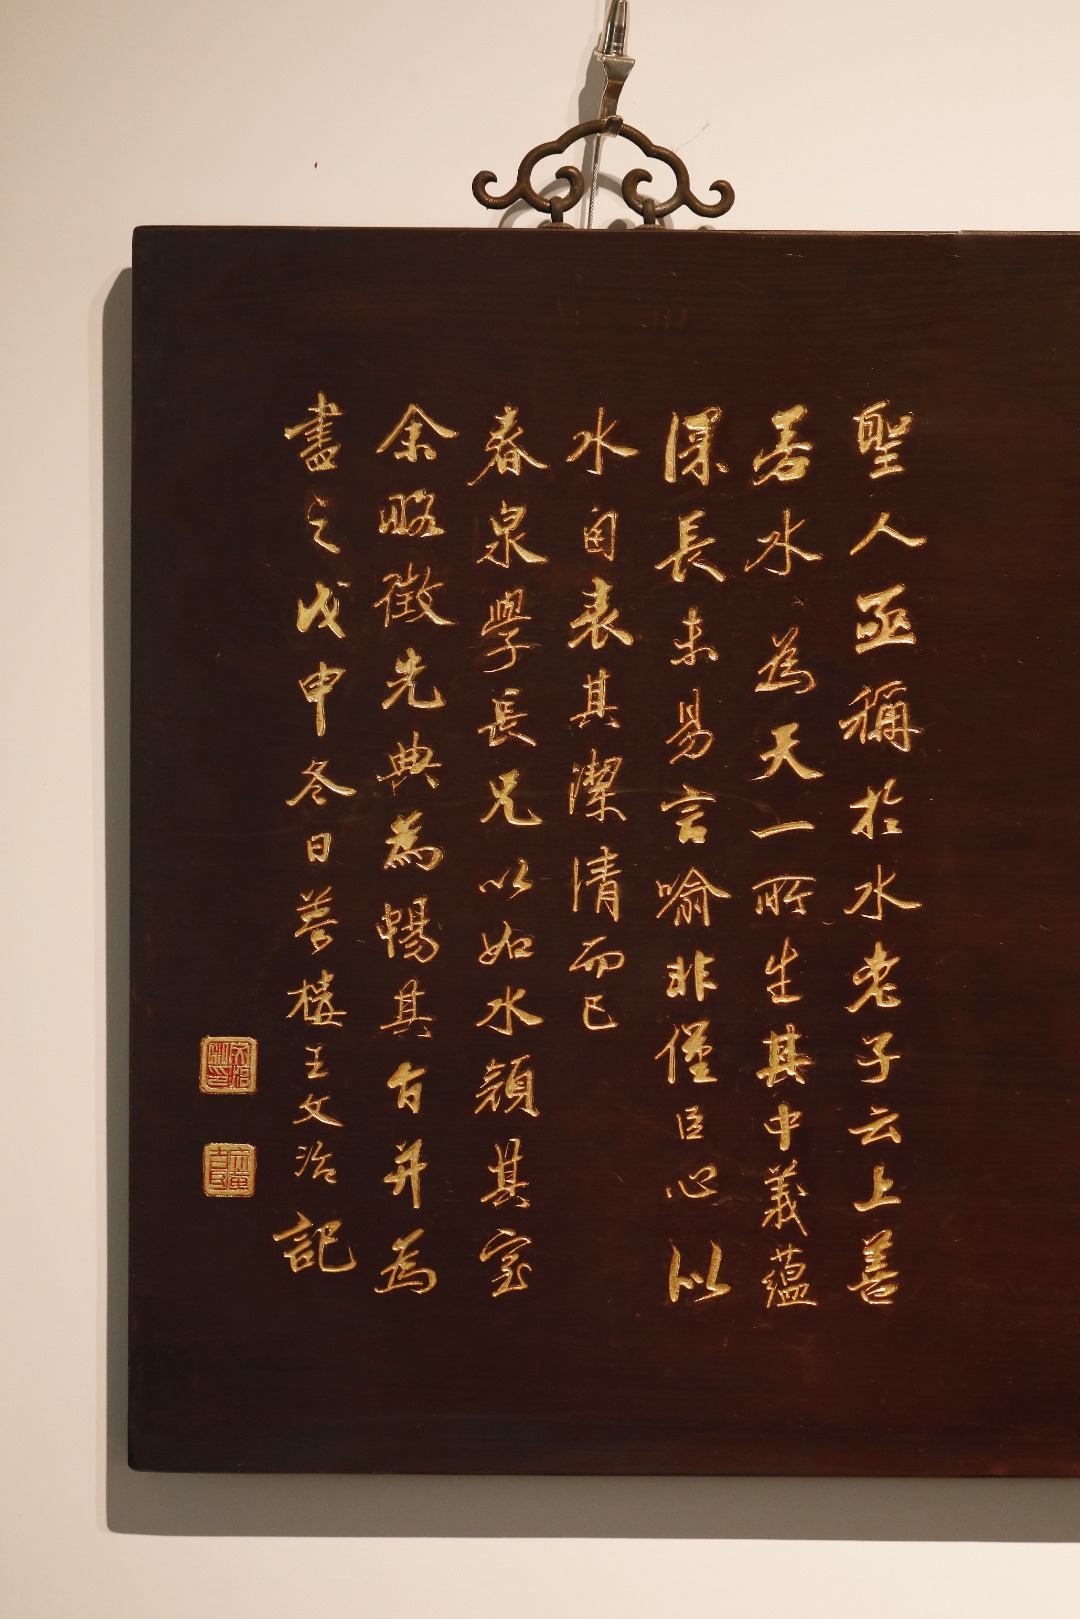 聖人亟稱於水老子云上善
若水為天一所生其中義蘊
深長未易言喻非僅臣心以
水自表其潔清而已
春泉學長兄以如水顏其室
余略徵先典為暢其旨并為
書之戊申冬日夢樓王文治記
文治